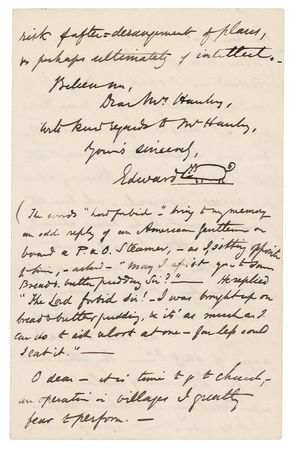 risk of after-derangement of plans,
& perhaps ultimately of intellect. –
Believe me,
Dear Mrs Hanley,
with kind regards to Mr Hanley,
Yours sincerely,
Edward
(The words "Lord forbid" – bring to my memory
an odd reply of an American gentleman on
board a P. & O. Steamer, – as I sitting opposite
to him, – asked – "May I assist you to some
Bread & butter pudding Sir?" – He replied
"The Lord forbid Sir! – I was brought up on
bread & butter pudding, & its' as much as I
can do to look at one – far less could
I eat it." –
O dear – it is time to go to church, –
an operation in villages I greatly
fear to perform. –